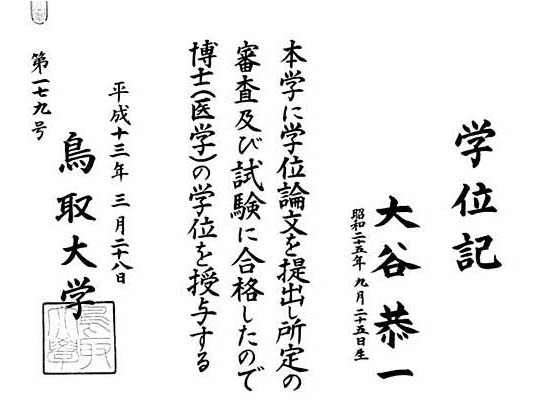 学位記
大谷恭一
昭和二十五年九月二十五日生
本学に学位論文を提出し所定の
審査及び試験に合格したので
博士(医学)の学位を授与する
平成十三年三月二十八日
鳥取大学
第一七九号
鳥取
大学